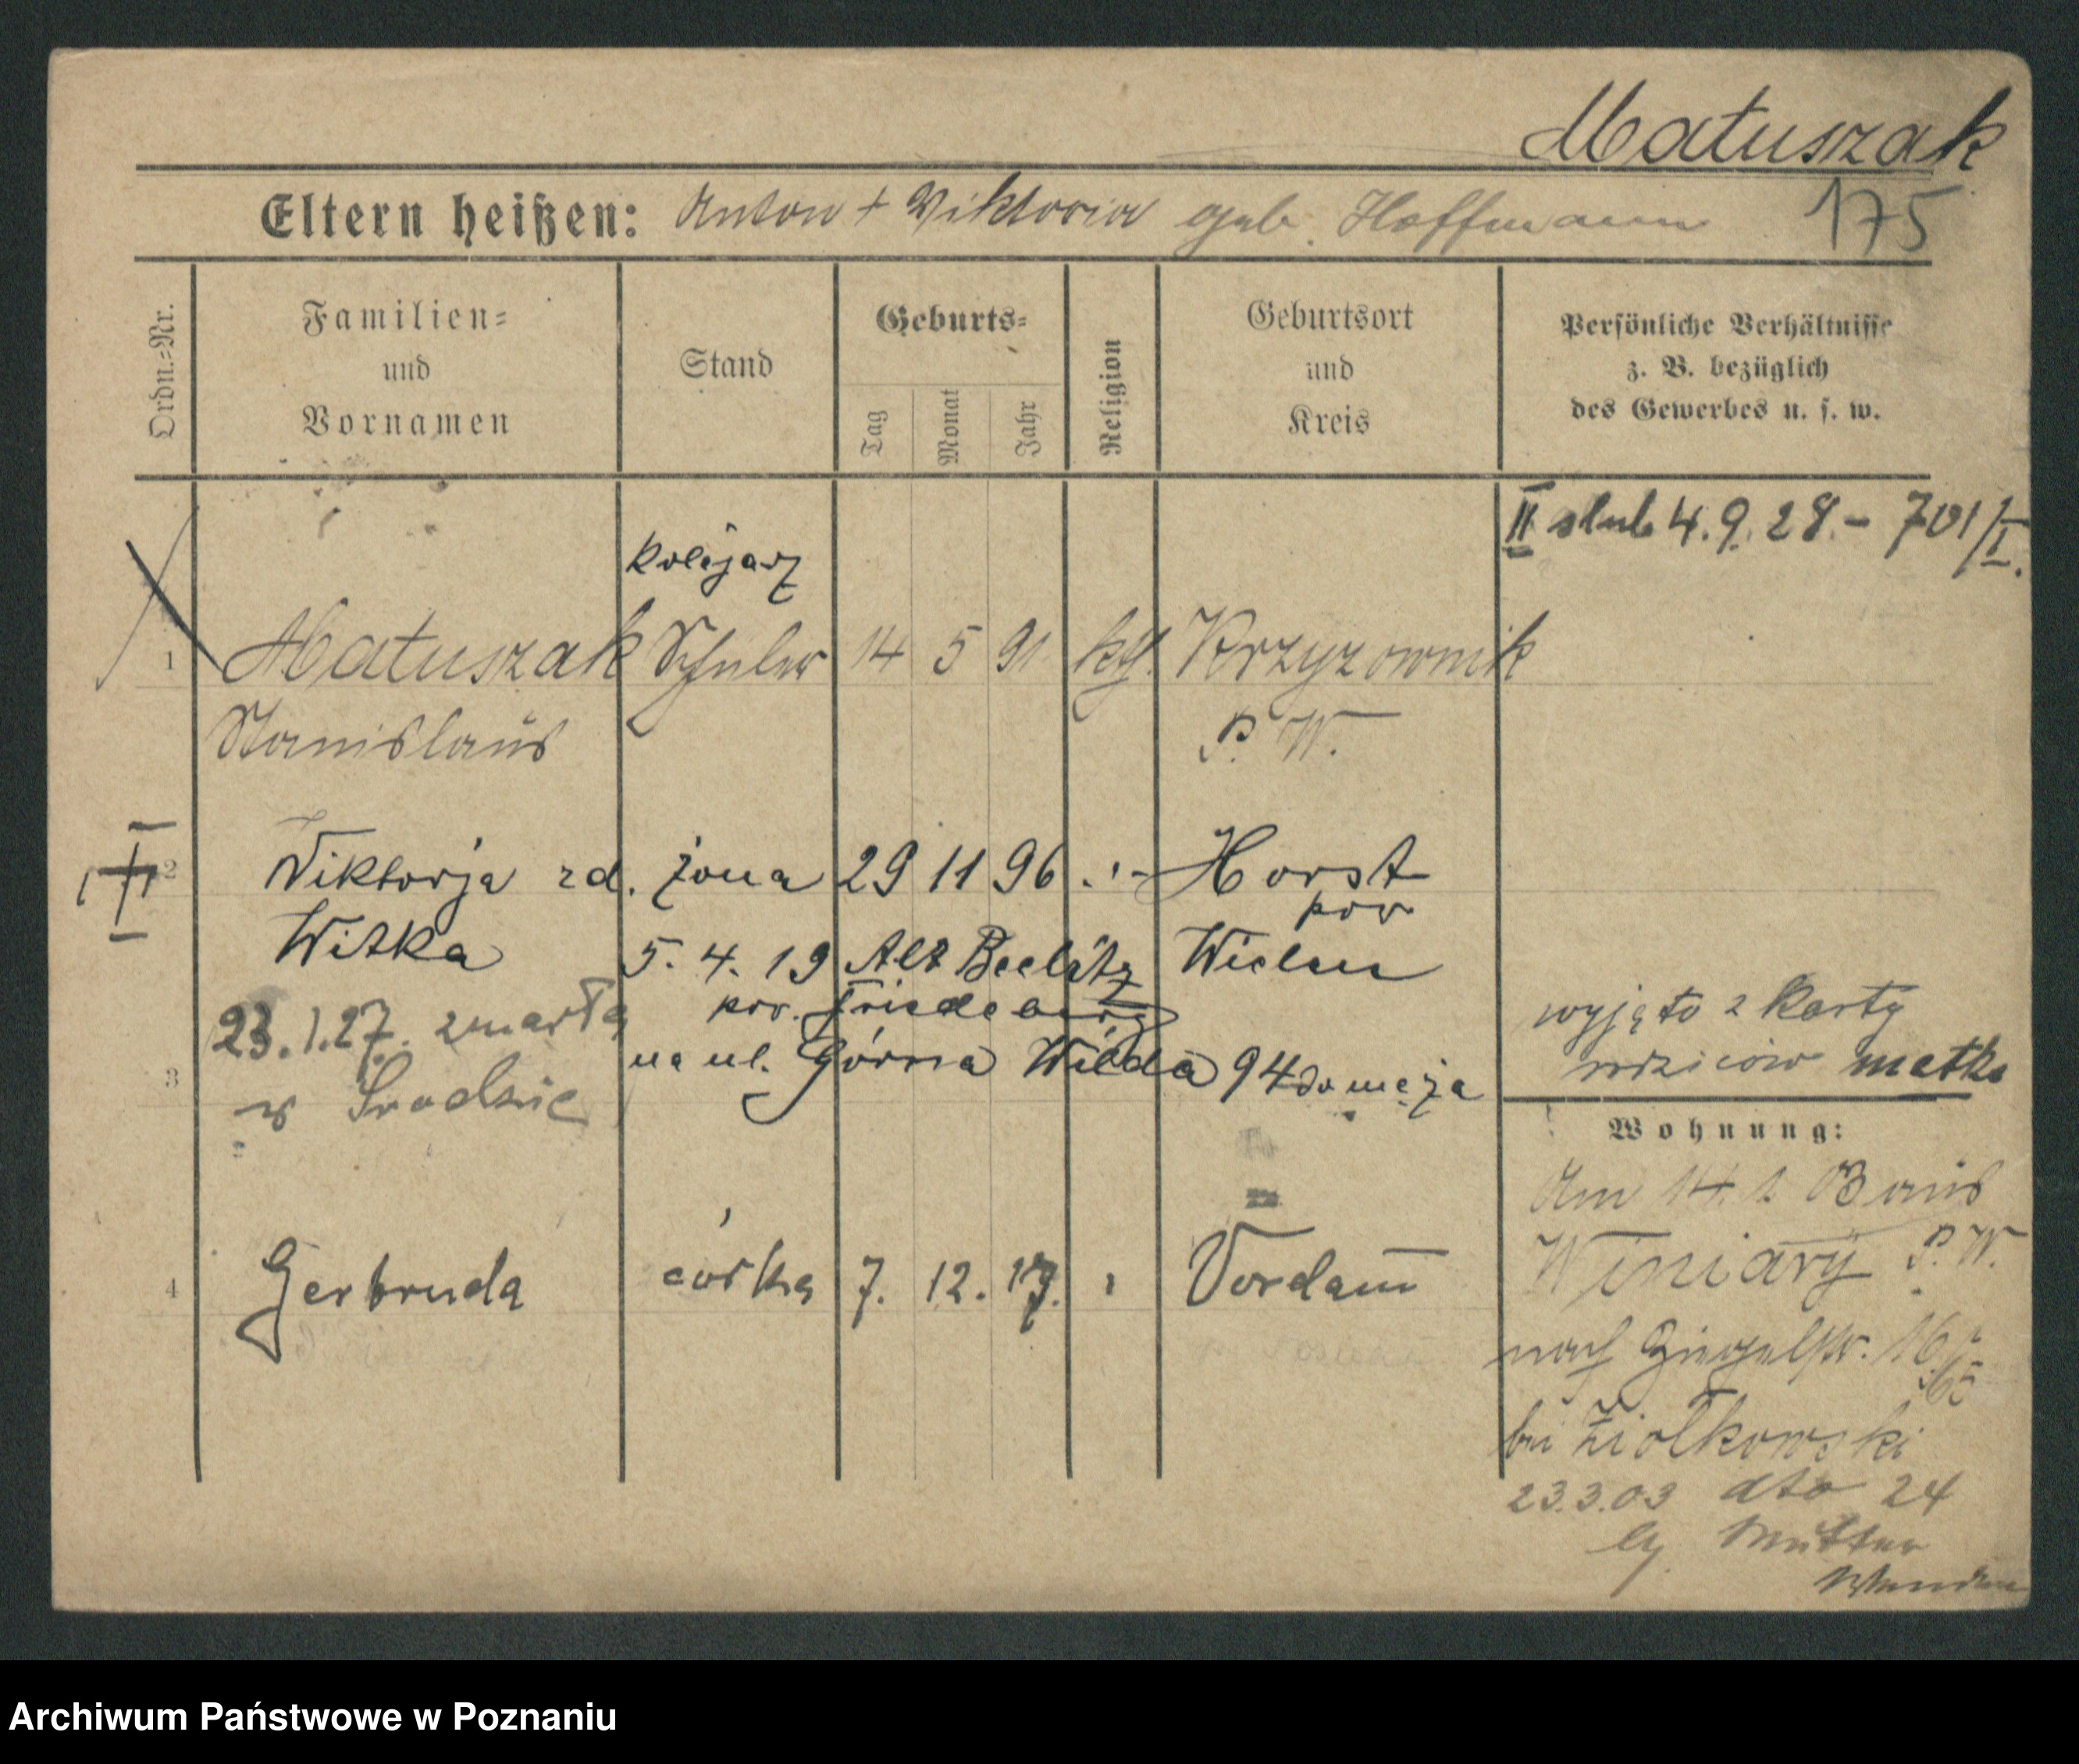 Matuszak
175
Eltern heißen: Anton + Viktoria geb. Hoffmann
Ordn.-Nr.
Familien-
und
Vornamen
Stand
Geburts-
Tag
Monat
Jahr
Religion
Geburtsort
und
Kreis
Persönliche Verhältnisse
z. B. bezüglich
des Gewerbes u. s. w.
II slub 4.9.28.- 701/I.
kolejarz
1 Matuszak Schüler 14 5 91 kth. Krzyzownik
Stanislaus P. W.
2 Wiktorja zd. żona 29 11 96 Horst
pow
Witka 5. 4. 19 Alt Beelitz Wielen
23.1.27. zmarła pow. Friedeberg
3 na ul. Górna Wilda 94 do męża
w Środzie
wyjęto z karty
rodziców matka
Wohnung:
Am 14.1.03 aus
Winiary P. W.
nach Ziegelstr. 16
bei Ziolkowski
23.3.03 dto 24
Mutter
4 Gertruda córka 7. 12. 19. Vordamm
Archiwum Państwowe w Poznaniu